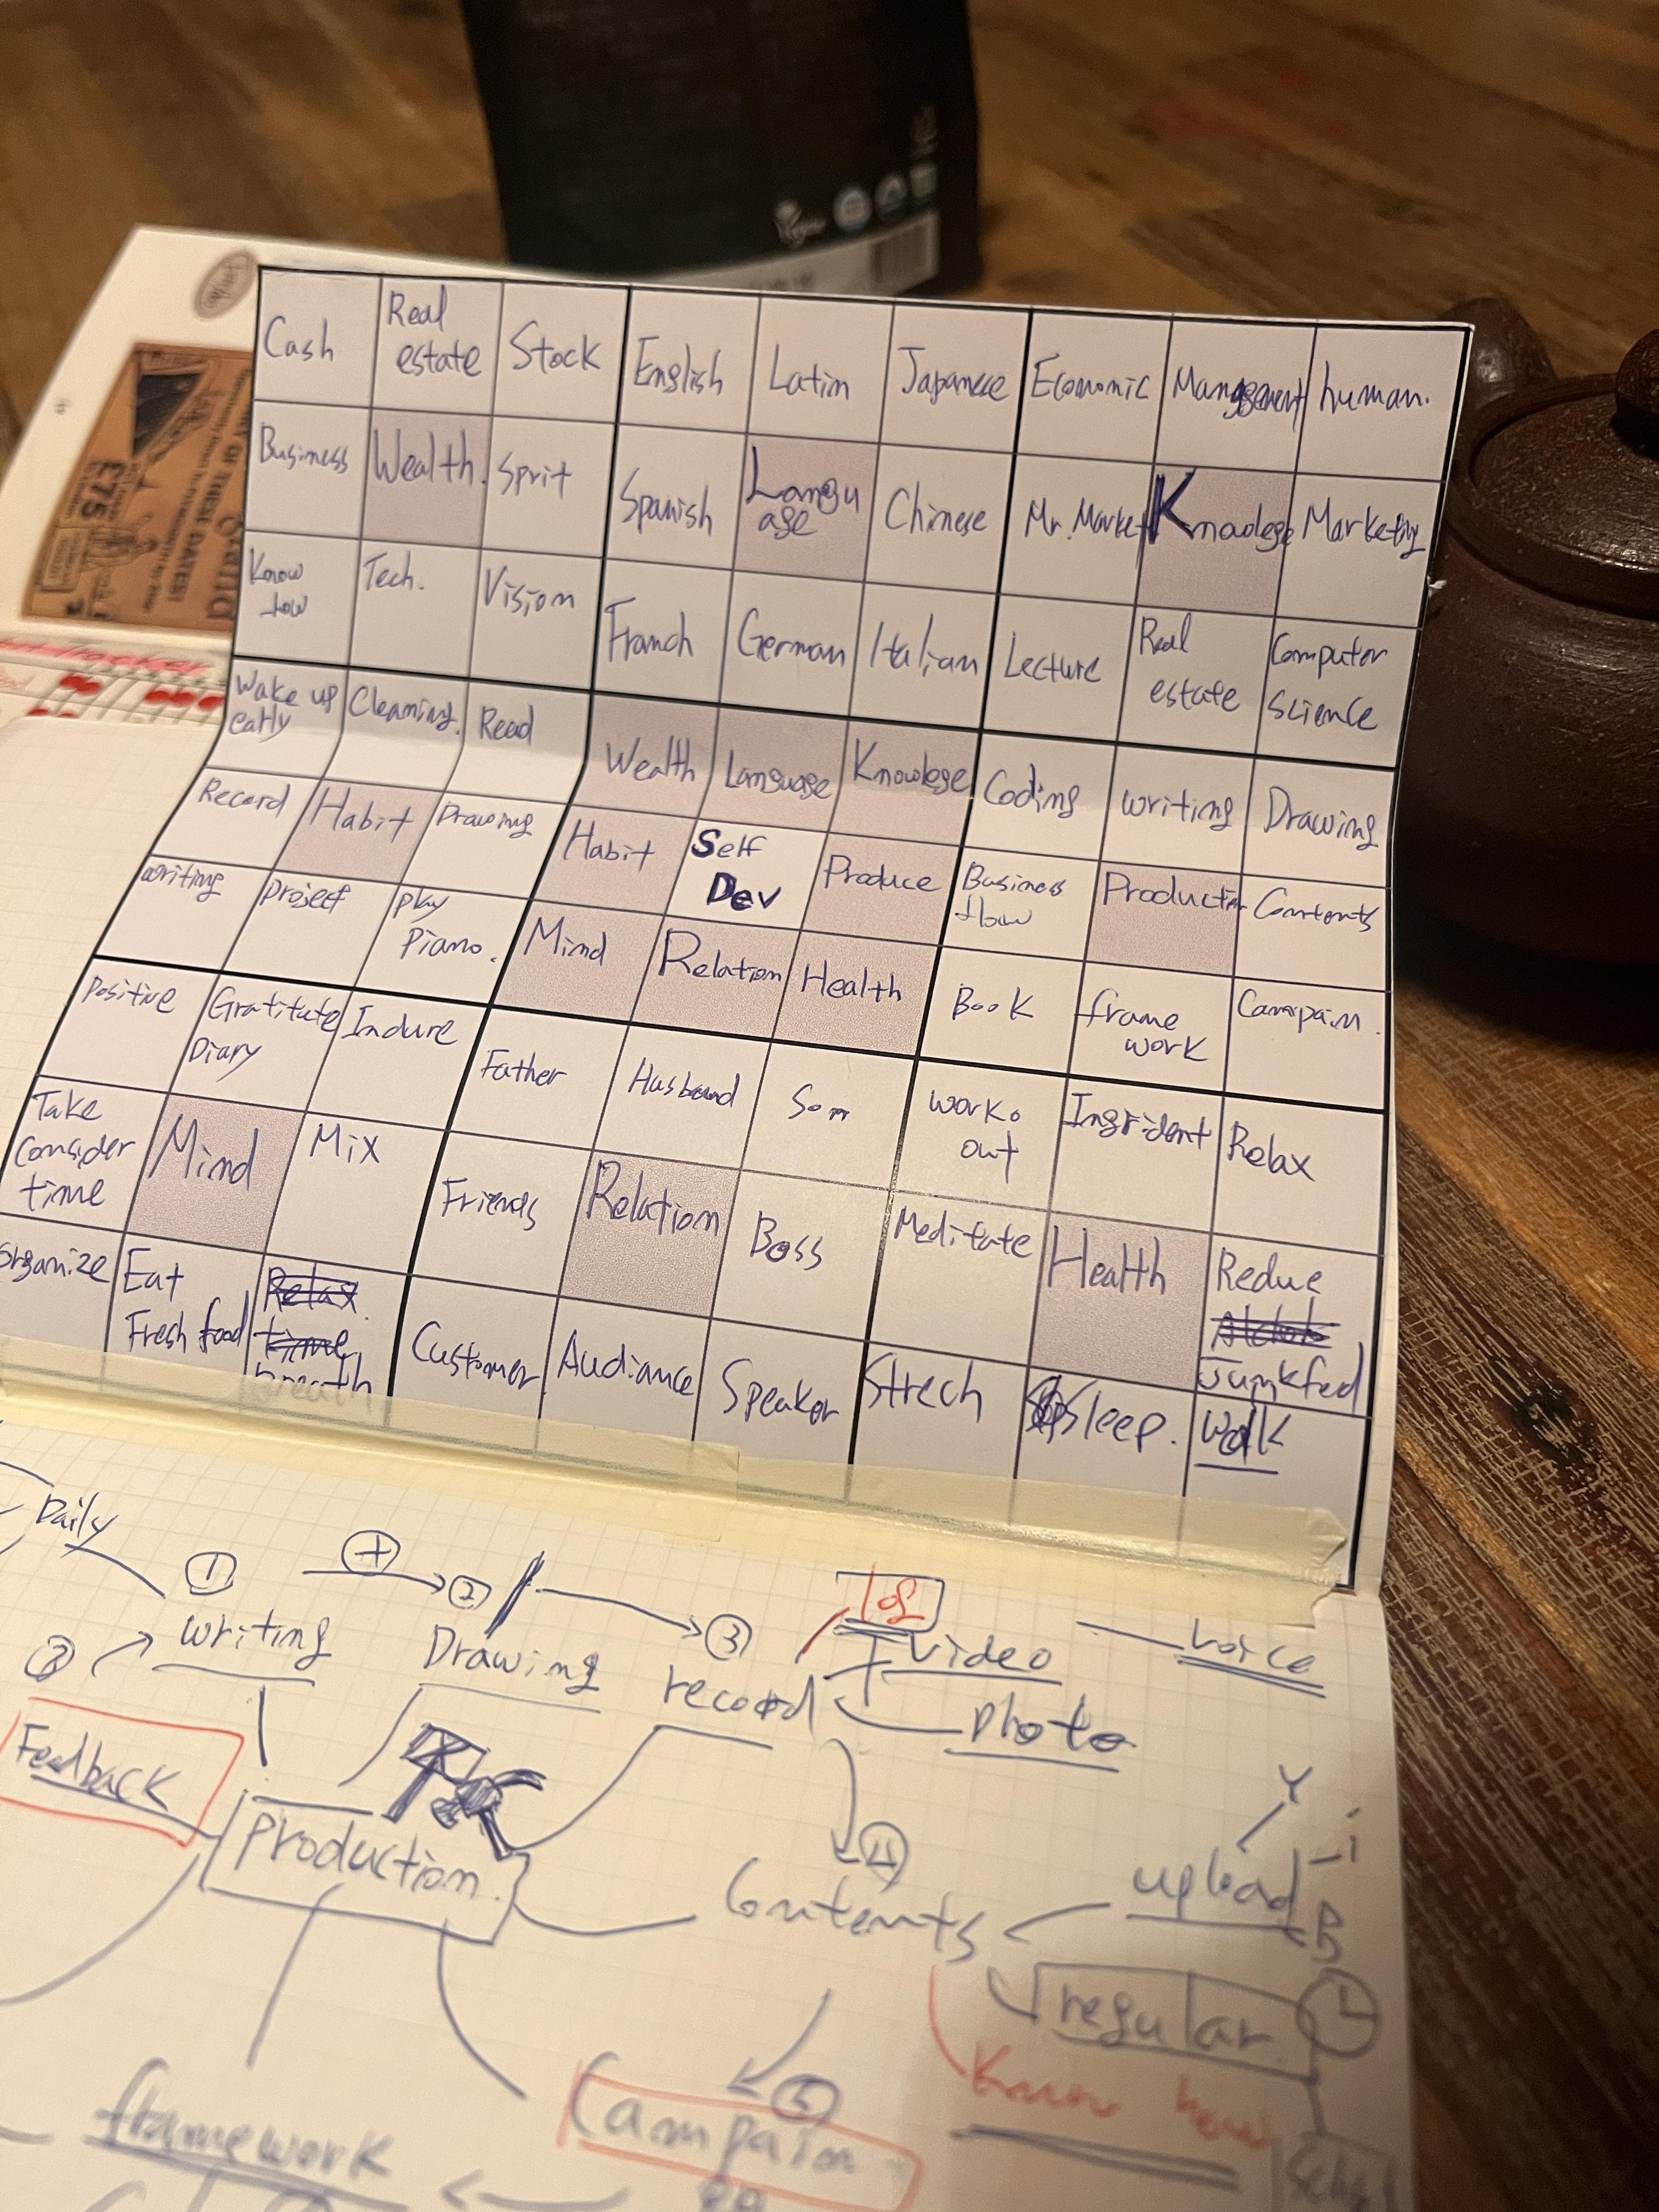 Cash
Real
estate
Stock
English
Latin
Japanese
Economic
Management
human.
Business
Wealth.
Sprit
Spanish
Langu
age
Chinese
Mr. Market
Knowlege
Marketing
Know
how
Tech.
Vision
Franch
German
Italian
Lecture
Real
estate
Computer
Science
Wake up
early
Cleaning.
Read
Wealth
Language
Knowlege
Coding
writing
Drawing
Record
Habit
Drawing
Habit
Self
Dev
Produce
Business
flow
Production
Contents
writing
project
play
piano.
Mind
Relation
Health
Book
frame
work
Campain.
Positive
Gratitute
Diary
Indure
Father
Husband
Son
Work
out
Ingrident
Relax
Take
Consider
time
Mind
Mix
Friends
Relation
Boss
Meditate
Health
Reduce
Junkfed
Organize
Eat
Fresh food
Relax
time
breath
Customer
Audiance
Speaker
Strech
Sleep.
Walk
£75
OF THESE DATES!
Daily
① + ② ③
writing
Drawing
record
Video
Voice
photo
②
Feedback
production.
④
Contents
Y
upload
i
B
regular
Know how
⑤
Campain
framework